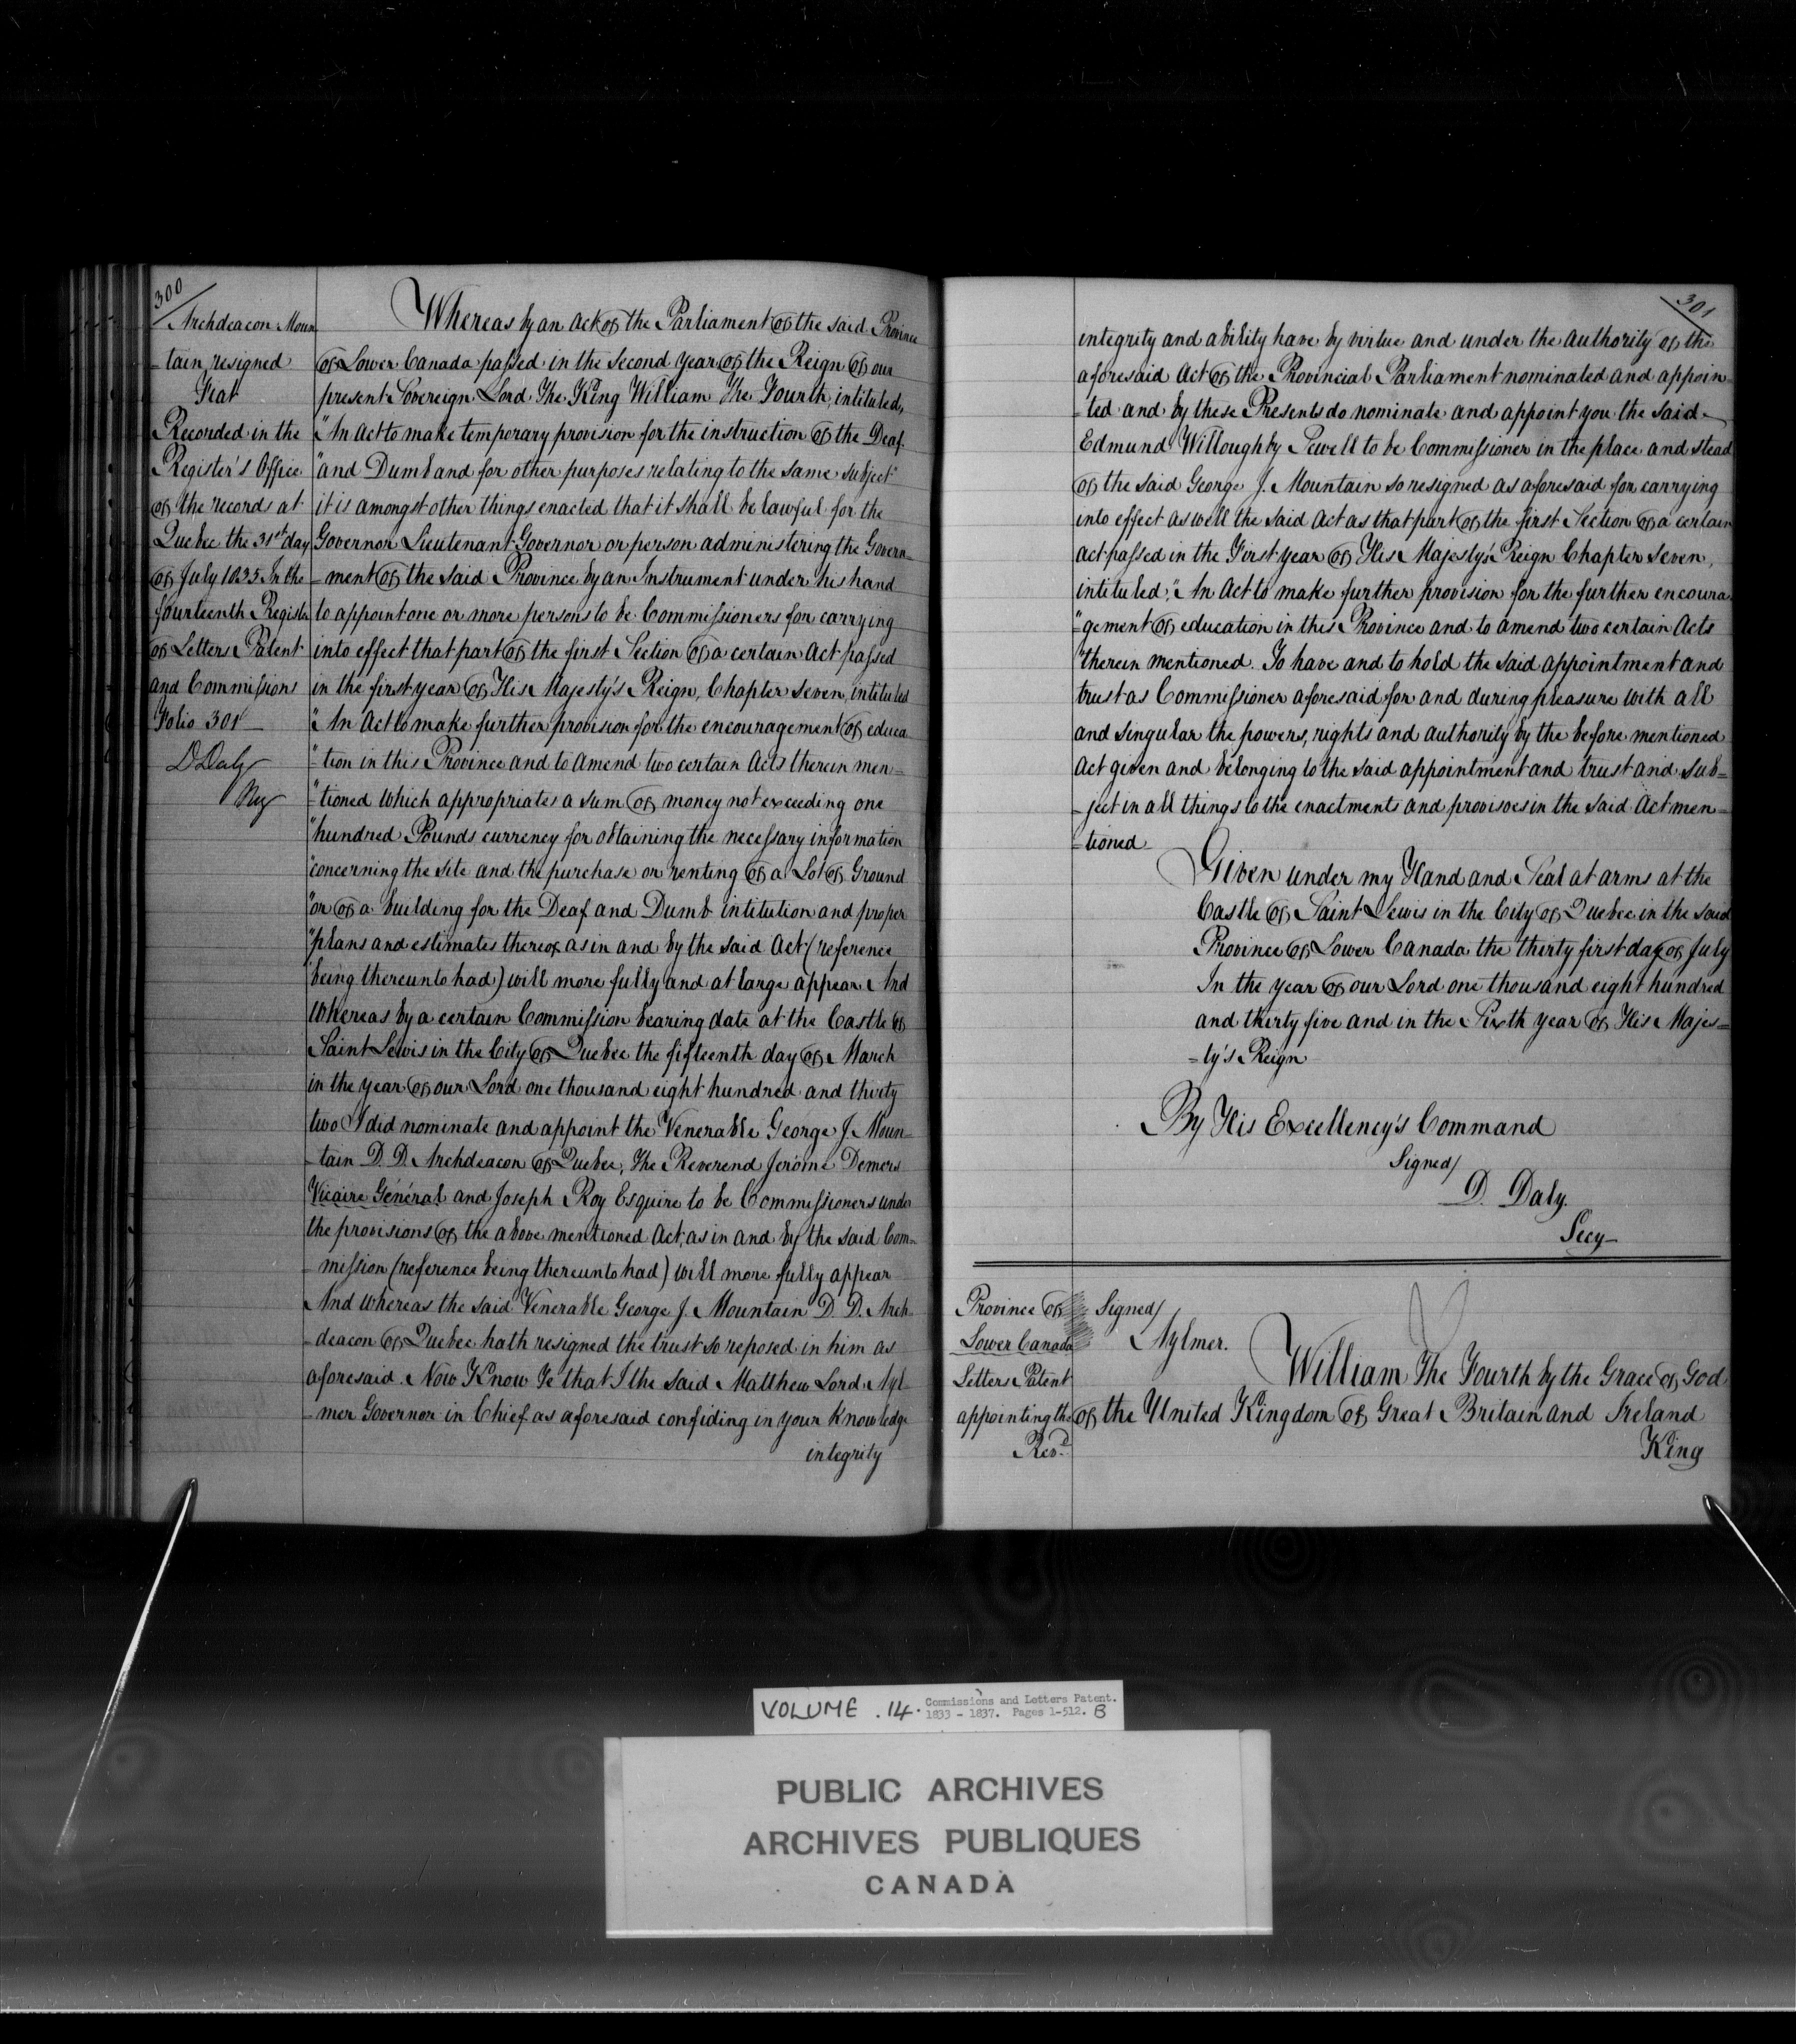 300
Archdeacon Moun
=tain resigned
Fiat
Recorded in the
Register's Office
of the records at
Quebec the 31st day
of July 1835 In the
fourteenth Register
of Letters Patent
and Commissions
Folio 301
D Daly
Reg
Whereas by an Act of the Parliament of the said Province
of Lower Canada passed in the Second Year of the Reign of our
present Sovereign Lord The King William The Fourth, intituled,
"An Act to make temporary provision for the instruction of the Deaf
"and Dumb and for other purposes relating to the same subject"
it is amongst other things enacted that it shall be lawful for the
Governor Lieutenant Governor or person administering the Govern=
=ment of the said Province by an Instrument under his hand
to appoint one or more persons to be Commissioners for carrying
into effect that part of the first Section of a certain Act passed
in the first year of His Majesty's Reign, Chapter Seven, intituled
"An Act to make further provision for the encouragement of educa
"=tion in this Province and to amend two certain Acts therein men=
"=tioned which appropriates a sum of money not exceeding one
"hundred Pounds currency for obtaining the necessary information
"concerning the site and the purchase or renting of a Lot of Ground
"or of a building for the Deaf and Dumb intitution and proper
"plans and estimates thereof as in and by the said Act (reference
being thereunto had) will more fully and at large appear And
Whereas by a certain Commission bearing date at the Castle of
Saint Lewis in the City of Quebec the fifteenth day of March
in the year of our Lord one thousand eight hundred and thirty
two I did nominate and appoint the Venerable George J. Moun=
=tain D. D. Archdeacon of Quebec, The Reverend Jerôme Demers
Vicaire Général and Joseph Roy Esquire to be Commissioners under
the provisions of the above mentioned Act, as in and by the said Com=
=mission (reference being thereunto had) will more fully appear
And whereas the said Venerable George J. Mountain D. D. Arch
=deacon of Quebec hath resigned the trust so reposed in him as
aforesaid. Now Know Ye that I the said Matthew Lord Ayl
=mer Governor in Chief as aforesaid confiding in your knowledge
integrity
301
integrity and ability have by virtue and under the authority of the
aforesaid Act of the Provincial Parliament nominated and appoin=
=ted and by these Presents do nominate and appoint you the said
Edmund Willoughby Sewell to be Commissioner in the place and stead
of the said George J. Mountain so resigned as aforesaid for carrying
into effect as well the said Act as that part of the first Section of a certain
act passed in the First year of His Majesty's Reign Chapter Seven,
intituled, "An Act to make further provision for the further encoura
"=gement of education in this Province and to amend two certain Acts
"therein mentioned. To have and to hold the said appointment and
trust as Commissioner aforesaid for and during pleasure with all
and singular the powers, rights and authority by the before mentioned
Act given and belonging to the said appointment and trust and sub=
=ject in all things to the enactments and provisoes in the said Act men=
=tioned
Given under my Hand and Seal at arms at the
Castle of Saint Lewis in the City of Quebec in the said
Province of Lower Canada the thirty first day of July
In the year of our Lord one thousand eight hundred
and thirty five and in the Sixth year of His Majes=
=ty's Reign
By His Excellency's Command
Signed/
D. Daly.
Secy
Province of
Lower Canada
Letters Patent
appointing the
Revd.
Signed/
Aylmer.
William The Fourth by the Grace of God
of the United Kingdom of Great Britain and Ireland
King
VOLUME .14. Commissions and Letters Patent.
1833 - 1837. Pages 1-512. B
PUBLIC ARCHIVES
ARCHIVES PUBLIQUES
CANADA